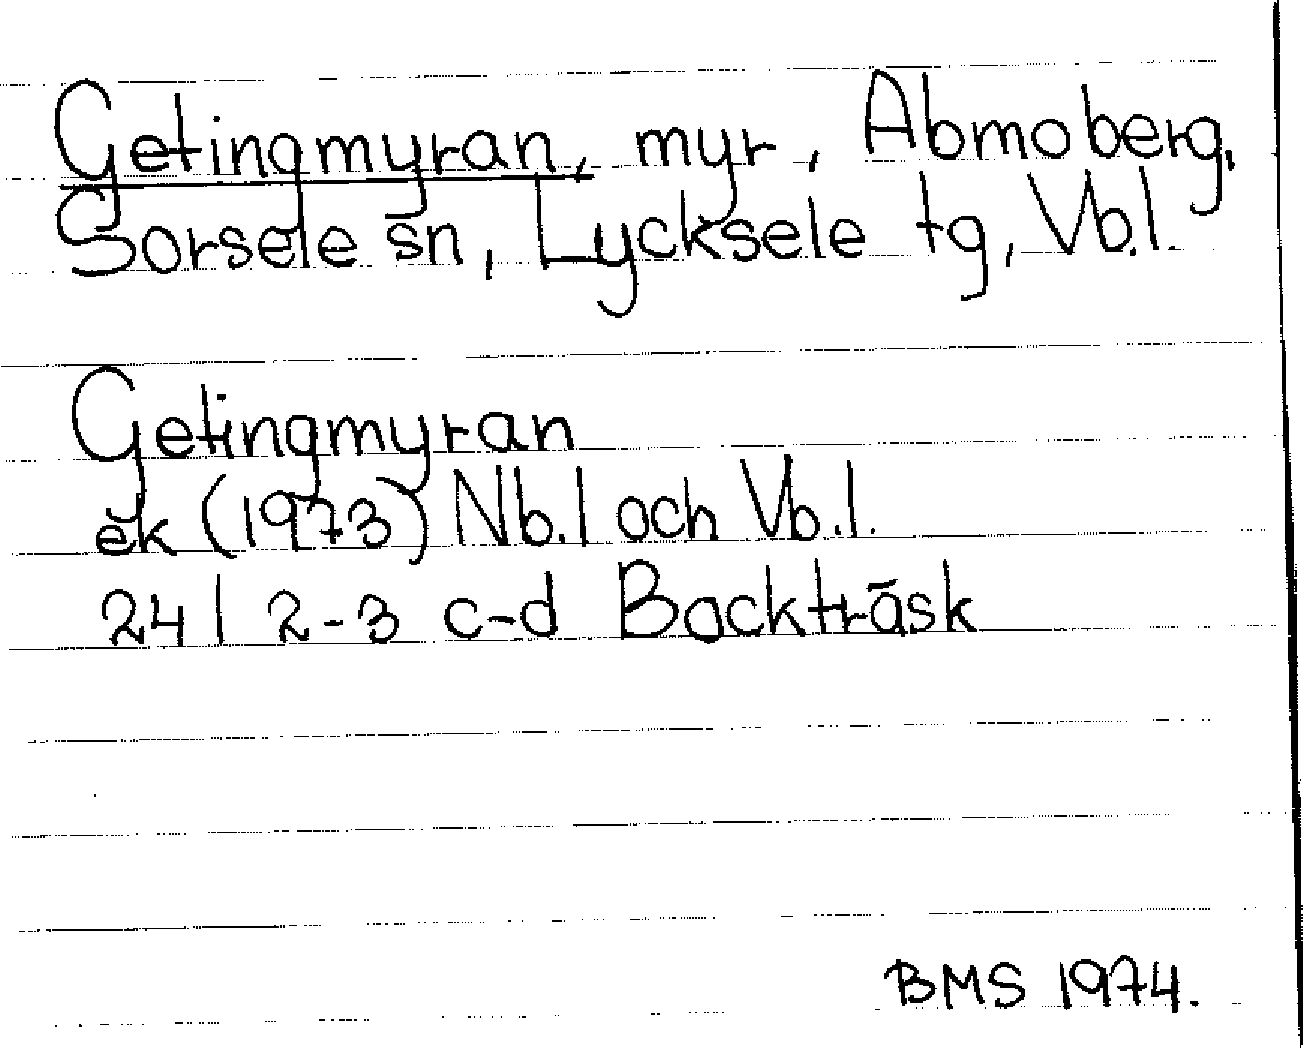 Getingmyran, myr, Abmoberg,
Sorsele sn, Lycksele tg, Vb.l.
Getingmyran
ek (1973) Nb.l och Vb.l.
24 I 2-3 c-d Backträsk
BMS 1974.